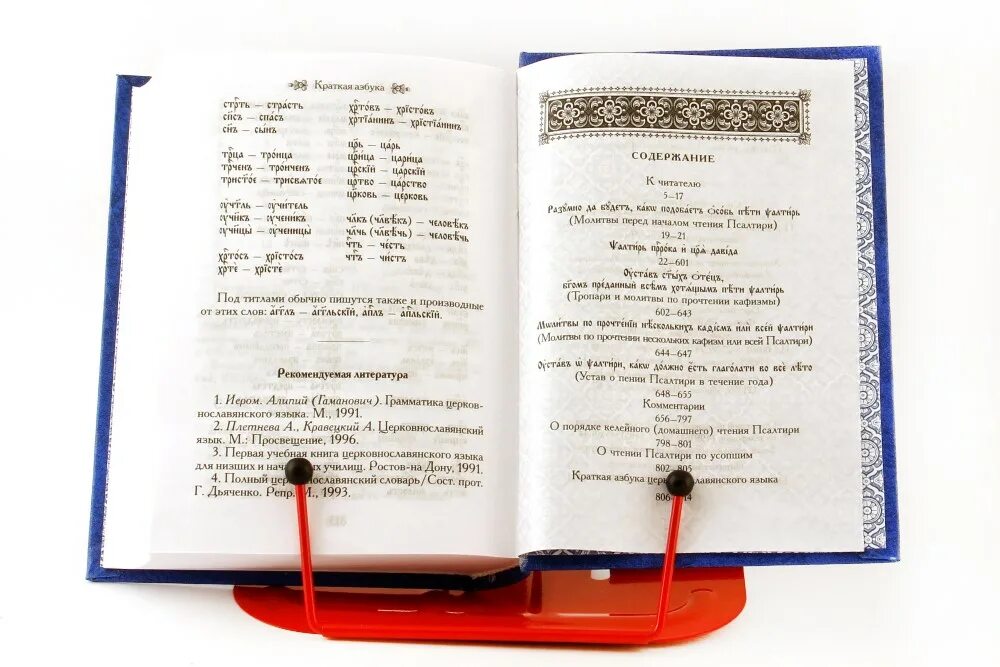 Краткая азбука
стрⷭ҇ть — страсть
сп҃съ — спасъ
сн҃ъ — сынъ
трⷪ҇ца — троица
трⷪ҇ченъ — троиченъ
трист҃ое — трисвятое
ᲂу҆чт҃ль — ᲂу҆читель
ᲂу҆чн҃къ — ᲂу҆ченикъ
ᲂу҆чн҃цы — ᲂу҆ченицы
хрⷭ҇тосъ — хрїстосъ
хрⷭ҇те — хрїсте
хрⷭ҇товъ — хрїстовъ
хрⷭ҇тїанинъ — хрїстїанинъ
цр҃ь — царь
цр҃ица — царица
цр҃скїй — царскїй
црⷭ҇тво — царство
цр҃ковь — церковь
чл҃къ (чл҃вѣкъ) — человѣкъ
чл҃чь (чл҃вѣчь) — человѣчь
чⷭ҇ть — честь
чⷭ҇тъ — чистъ
Под титлами обычно пишутся также и производные
от этих слов: а҆́гг҃лъ — а҆́гг҃льскїй, а҆п҃лъ — а҆п҃льскїй.
Рекомендуемая литература
1. Иером. Алипий (Гаманович). Грамматика церков-
нославянского языка. М., 1991.
2. Плетнева А., Кравецкий А. Церковнославянский
язык. М.: Просвещение, 1996.
3. Первая учебная книга церковнославянского языка
для низших и нача ых училищ. Ростов-на Дону, 1991.
4. Полный цер нославянский словарь/Сост. прот.
Г. Дьяченко. Репр. М., 1993.
СОДЕРЖАНИЕ
К читателю
5–17
Разумно да будетъ, какѡ подобаетъ ѻсобь пѣти ѱалтирь
(Молитвы перед началом чтения Псалтири)
19–21
Ѱалтирь прⷪ҇рока и цр҃ѧ давіда
22–601
Оуставъ ст҃ыхъ ѻтецъ,
бг҃омъ преданный всѣмъ хотѧщымъ пѣти ѱалтирь
(Тропари и молитвы по прочтении кафизмы)
602–643
Молитвы по прочтенїи нѣсколькихъ каѳісмъ или всей ѱалтири
(Молитвы по прочтении нескольких кафизм или всей Псалтири)
644–647
Оуставъ ѡ ѱалтири, какѡ должно єсть глаголати во все лѣто
(Устав о пении Псалтири в течение года)
648–655
Комментарии
656–797
О порядке келейного (домашнего) чтения Псалтири
798–801
О чтении Псалтири по усопшим
802–805
Краткая азбука церк вянского языка